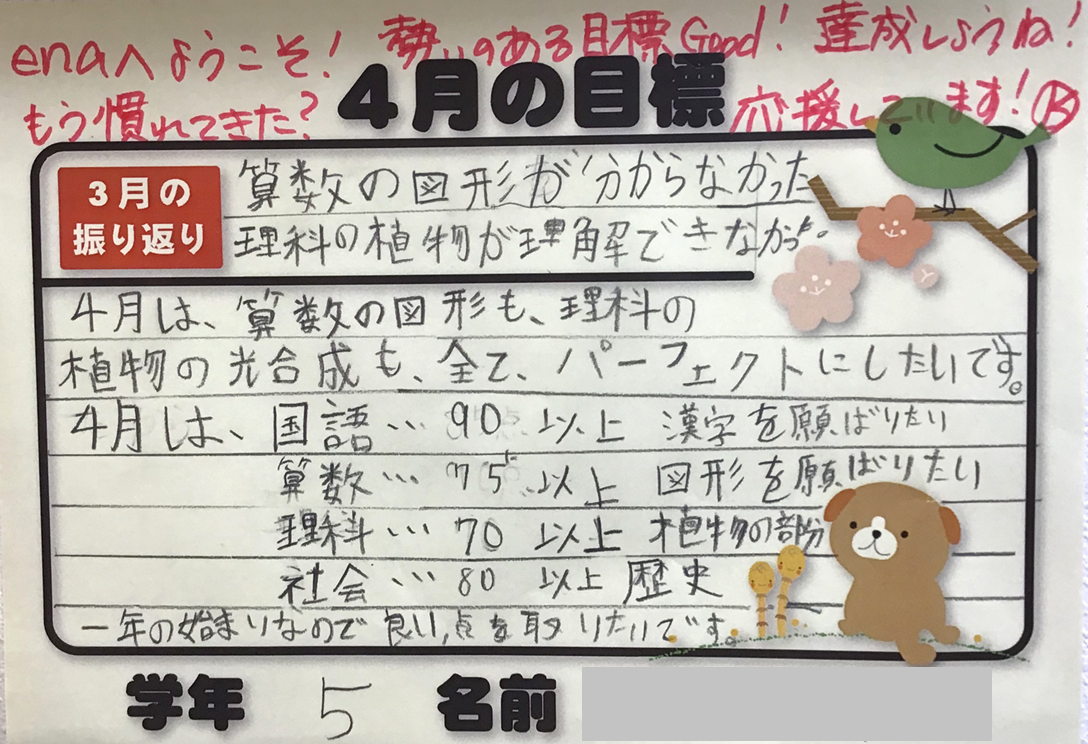 enaへようこそ! 勢いのある目標Good! 達成しようね!
もう慣れてきた? 応援しています! K
4月の目標
3月の
振り返り
算数の図形が分からなかった
理科の植物が理解できなかった。
4月は、算数の図形も、理科の
植物の光合成も、全て、パーフェクトにしたいです。
4月は、国語…90 以上 漢字を願ばりたい
算数…75 以上 図形を願ばりたい
理科…70 以上 植物の部分
社会…80 以上 歴史
一年の始まりなので良い点を取りたいです。
学年 5 名前